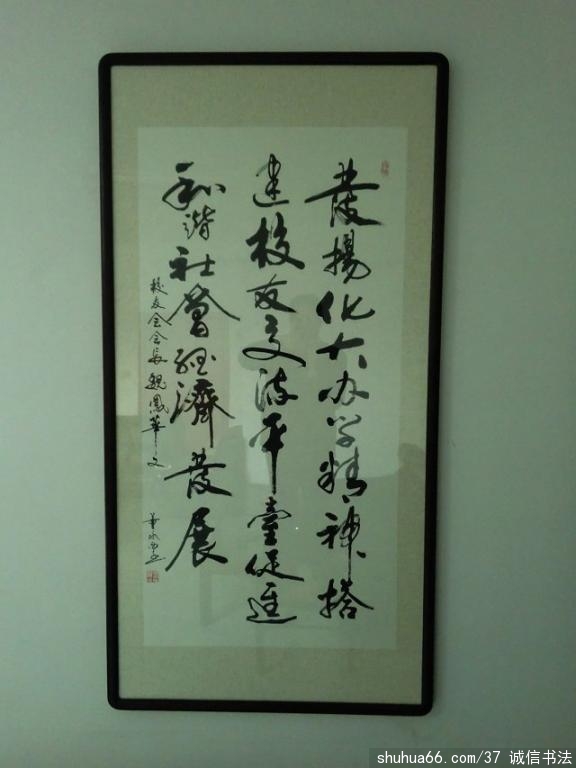 發揚化大办学精神搭
建校友交流平臺促進
和谐社會經濟發展
校友会会長魏鳳華文
shuhua66.com/37 诚信书法